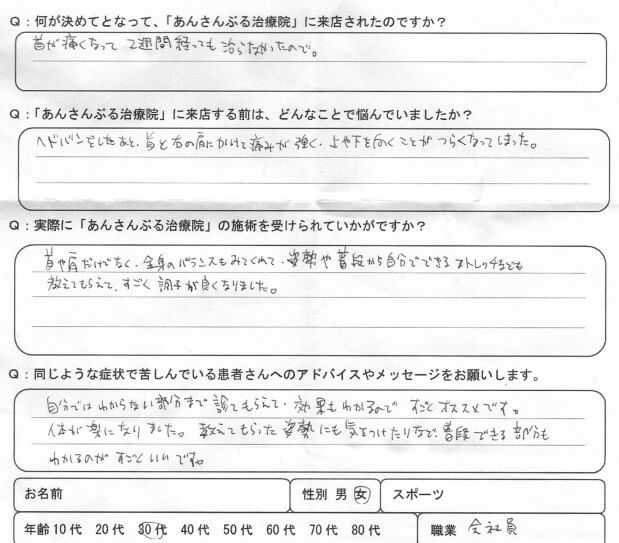 Q：何が決めてとなって、「あんさんぶる治療院」に来店されたのですか？
首が痛くなって 2週間経っても治らなかったので。
Q：「あんさんぶる治療院」に来店する前は、どんなことで悩んでいましたか？
ヘドバンをしたあと、首と右の肩にかけて痛みが強く、上や下を向くことがつらくなってしまった。
Q：実際に「あんさんぶる治療院」の施術を受けられていかがですか？
首や肩だけでなく、全身のバランスもみてくれて、姿勢や普段から自分でできるストレッチなども
教えてもらえて、すごく調子が良くなりました。
Q：同じような症状で苦しんでいる患者さんへのアドバイスやメッセージをお願いします。
自分ではわからない部分まで診てもらえて、効果もわかるので すごくオススメです。
体が楽になりました。教えてもらった姿勢にも気をつけたりなど普段できる部分も
わかるのがすごくいいです。
お名前 性別 男 女 スポーツ
年齢 10代 20代 30代 40代 50代 60代 70代 80代 職業 会社員